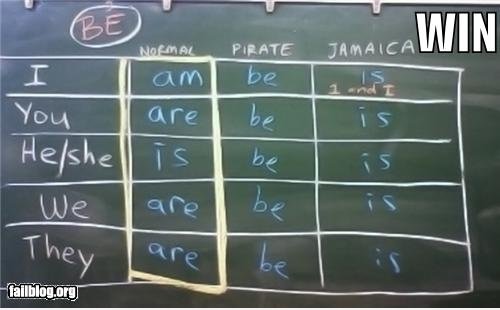 BE
WIN
NORMAL PIRATE JAMAICA
I am be is
1 and I
You are be is
He/she is be is
We are be is
They are be is
failblog.org